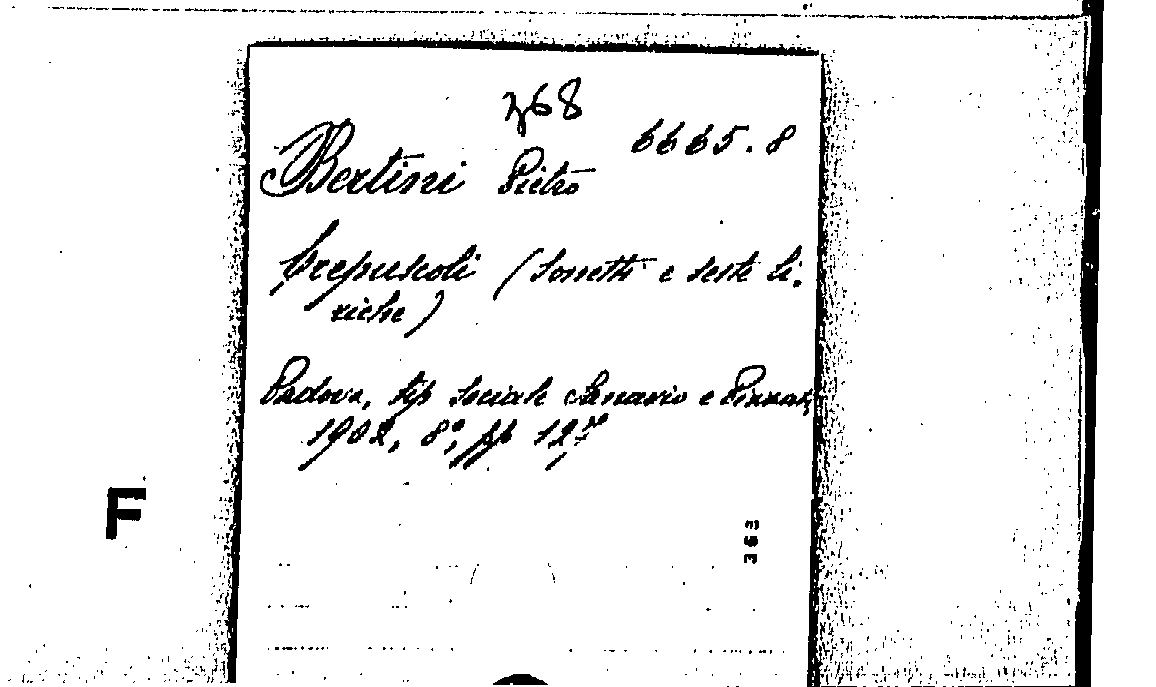 368
6665.8
Bertini Pietro
Crepuscoli (Sonetti e seste li-
riche)
Padova, tip sociale Sanavio e Pizzati,
1902, 8°, pp 127
F
363